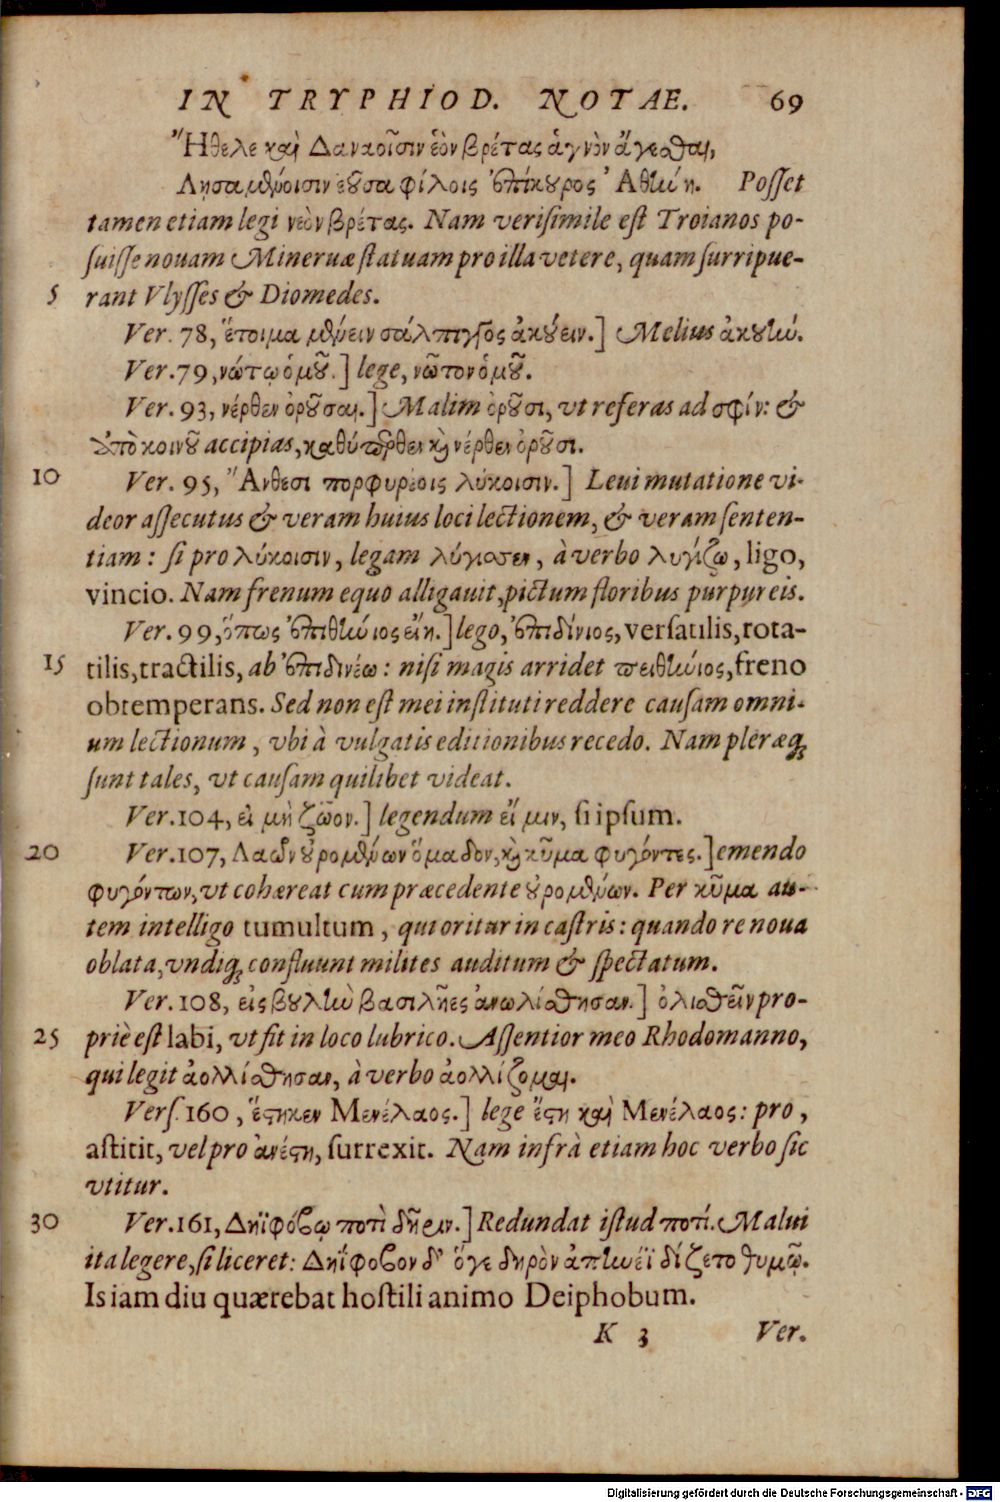 IN TRYPHIOD. NOTAE. 69
Ἤθελε καὶ Δαναοῖσιν ἑὸν βρέτας ἁγνὸν ἄγεσθαι,
Λησαμένοισιν ἐοῦσα φίλοις ἐπίκουρος Ἀθήνη. Posset
tamen etiam legi νεὸν βρέτας. Nam verisimile est Troianos po-
suisse nouam Mineruæ statuam pro illa vetere, quam surripue-
5 rant Vlysses & Diomedes.
Ver. 78, ἕτοιμα μένειν σάλπιγγος ἀκούειν.] Melius ἀκουήν.
Ver. 79, νώτῳ ὁμοῦ.] lege, νῶτον ὁμοῦ.
Ver. 93, νέρθεν ὀροῦσαι.] Malim ὀροῦσι, vt referas ad σφίν: &
ἀπὸ κοινοῦ accipias, καθύπερθεν καὶ νέρθεν ὀροῦσι.
10 Ver. 95, Ἄνθεσι πορφυρέοις λύκοισιν.] Leui mutatione vi-
deor assecutus & veram huius loci lectionem, & veram senten-
tiam: si pro λύκοισιν, legam λύγισσεν, à verbo λυγίζω, ligo,
vincio. Nam frenum equo alligauit, pictum floribus purpureis.
Ver. 99, ὅπως ἐπιθήνιος εἴη.] lego, ἐπιδίνιος, versatilis, rota-
15 tilis, tractilis, ab ἐπιδινέω: nisi magis arridet πειθήνιος, freno
obtemperans. Sed non est mei instituti reddere causam omni-
um lectionum, vbi à vulgatis editionibus recedo. Nam pleræq;
sunt tales, vt causam quilibet videat.
Ver. 104, εἰ μὴ ζῶον.] legendum εἴ μιν, si ipsum.
20 Ver. 107, Λαῶν οὐρομένων ὅμαδον, καὶ κῦμα φυγόντες.] emendo
φυγόντων, vt cohæreat cum præcedente οὐρομένων. Per κῦμα au-
tem intelligo tumultum, qui oritur in castris: quando re noua
oblata, vndiq; confluunt milites auditum & spectatum.
Ver. 108, εἰς βουλὴν βασιλῆες ἀνωλίσθησαν.] ὀλισθεῖν pro-
25 priè est labi, vt fit in loco lubrico. Assentior meo Rhodomanno,
qui legit ἀολλίσθησαν, à verbo ἀολλίζομαι.
Vers. 160, ἕστηκεν Μενέλαος.] lege ἔστη καὶ Μενέλαος: pro,
astitit, vel pro ἀνέστη, surrexit. Nam infrà etiam hoc verbo sic
vtitur.
30 Ver. 161, Δηϊφόβῳ ποτὶ δῆριν.] Redundat istud ποτί. Malui
ita legere, si liceret: Δηΐφοβον δ' ὅγε δηρὸν ἀπηνέϊ δίζετο θυμῷ.
Is iam diu quærebat hostili animo Deiphobum.
K 3 Ver.
Digitalisierung gefördert durch die Deutsche Forschungsgemeinschaft - DFG